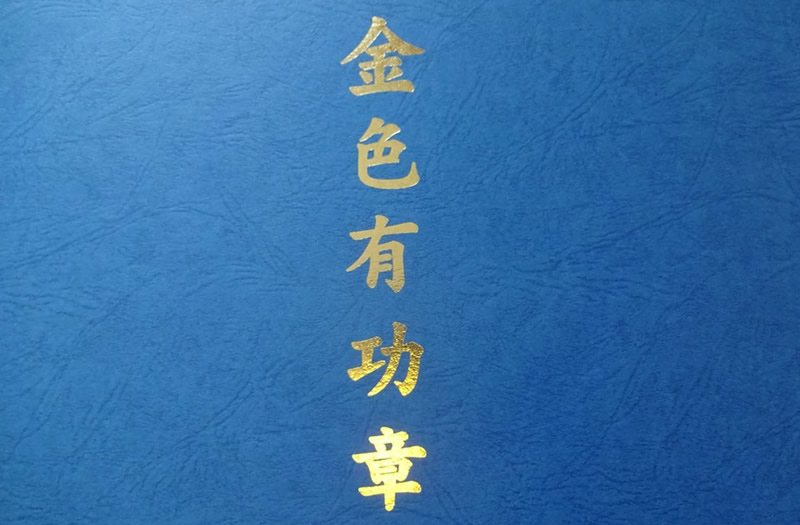 金色有功章